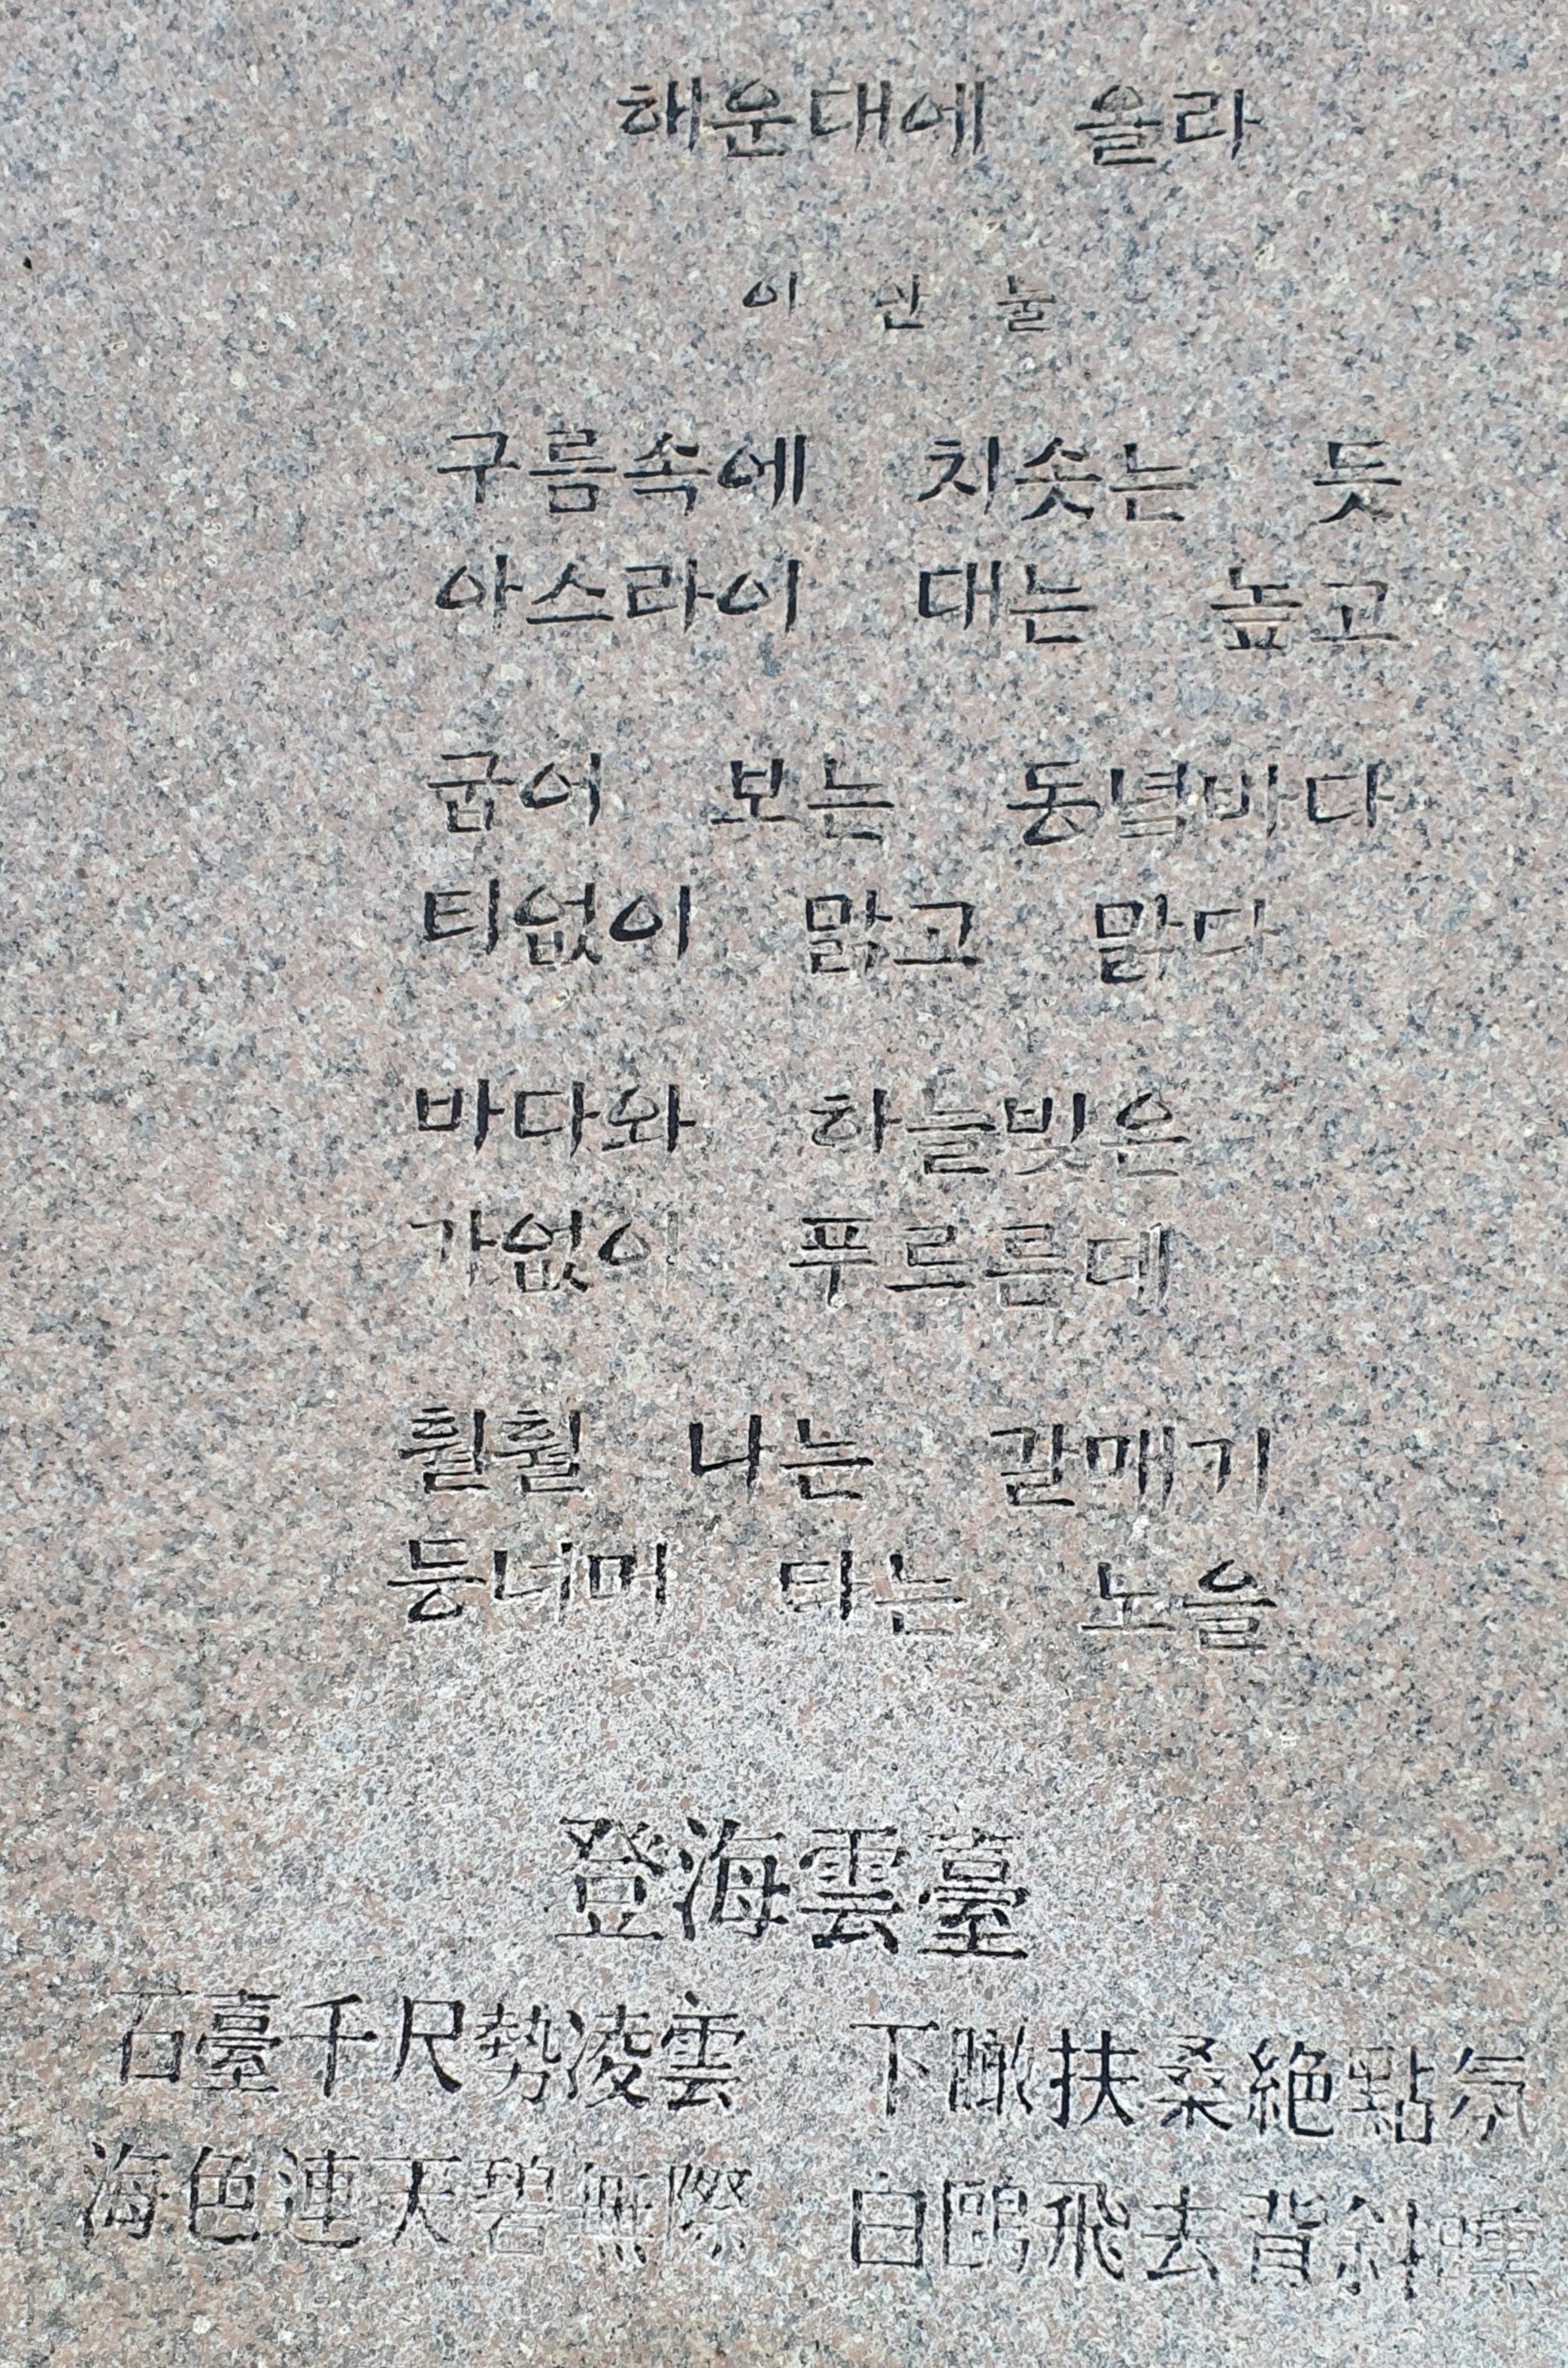 해운대에 올라
이 안 눌
구름속에 치솟는 듯
아스라이 대는 높고
굽어 보는 동녘바다
티없이 맑고 맑다
바다와 하늘빛은
가없이 푸르른데
훨훨 나는 갈매기
등너머 타는 노을
登海雲臺
石臺千尺勢凌雲 下瞰扶桑絶點氛
海色連天碧無際 白鷗飛去背斜曛